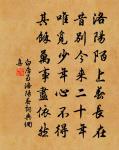 洛陽陌上春長在
昔別今來二十年
唯覓少年心不得
其餘萬事盡依然
白居易洛陽春詞興國
真